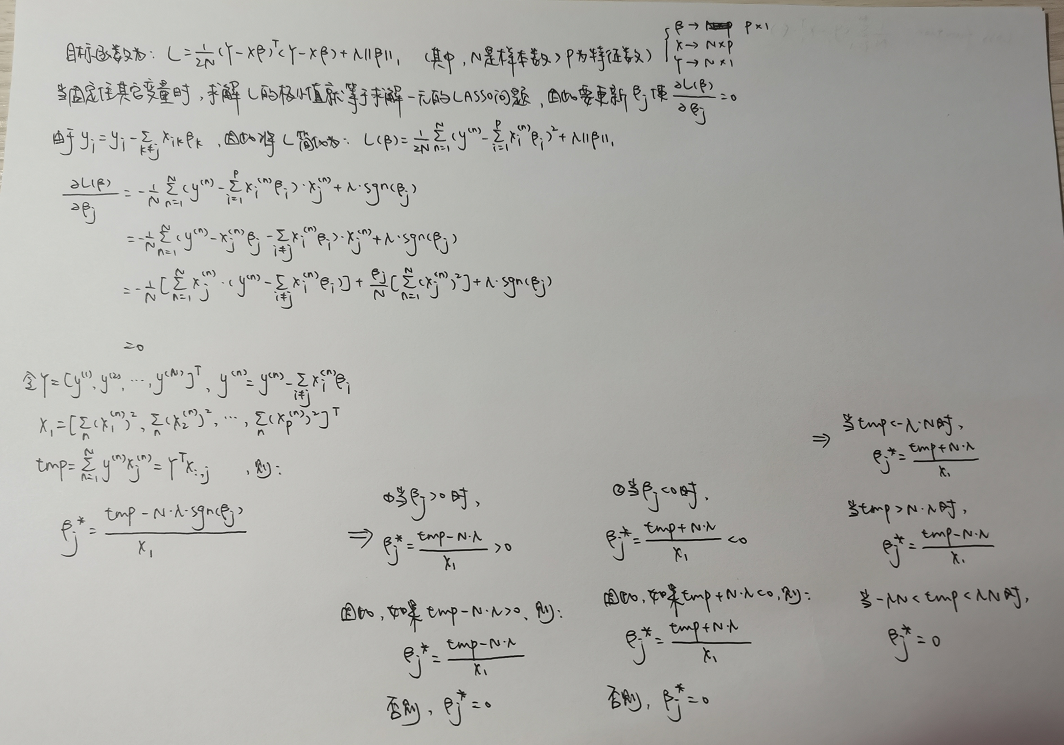 目标函数为: L = 1/2N (Y-Xβ)ᵀ(Y-Xβ) + λ||β||₁ (其中, N是样本数, P为特征数) { β → P×1
X → N×P
Y → N×1
当固定住其它变量时, 求解L的极小值就等于求解一元的LASSO问题, 因此要更新 βj 使 ∂L(β)/∂βj = 0
由于 yi = yi - Σ_{k≠j} xik βk, 因此将L简化为: L(β) = 1/2N Σ_{n=1}^{N} (y⁽ⁿ⁾ - Σ_{i=1}^{P} xi⁽ⁿ⁾βi)² + λ||β||₁
∂L(β)/∂βj = -1/N Σ_{n=1}^{N} (y⁽ⁿ⁾ - Σ_{i=1}^{P} xi⁽ⁿ⁾βi)·xj⁽ⁿ⁾ + λ·sgn(βj)
= -1/N Σ_{n=1}^{N} (y⁽ⁿ⁾ - xj⁽ⁿ⁾βj - Σ_{i≠j} xi⁽ⁿ⁾βi)·xj⁽ⁿ⁾ + λ·sgn(βj)
= -1/N [Σ_{n=1}^{N} xj⁽ⁿ⁾·(y⁽ⁿ⁾ - Σ_{i≠j} xi⁽ⁿ⁾βi)] + βj/N [Σ_{n=1}^{N} (xj⁽ⁿ⁾)²] + λ·sgn(βj)
=0
令 Y = [y⁽¹⁾, y⁽²⁾, ..., y⁽ᴺ⁾]ᵀ, y⁽ⁿ⁾ = y⁽ⁿ⁾ - Σ_{i≠j} xi⁽ⁿ⁾βi
X₁ = [Σ_n (x1⁽ⁿ⁾)², Σ_n (x2⁽ⁿ⁾)², ..., Σ_n (xp⁽ⁿ⁾)²]ᵀ
tmp = Σ_{n=1}^{N} y⁽ⁿ⁾xj⁽ⁿ⁾ = YᵀX:,j , 则:
βj* = (tmp - N·λ·sgn(βj))/X₁
⇒ ①当βj>0时,
βj* = (tmp - N·λ)/X₁ > 0
因此, 如果 tmp - N·λ > 0, 则:
βj* = (tmp - N·λ)/X₁
否则, βj* = 0
②当βj<0时,
βj* = (tmp + N·λ)/X₁ < 0
因此, 如果 tmp + N·λ < 0, 则:
βj* = (tmp + N·λ)/X₁
否则, βj* = 0
⇒ 当tmp < -λ·N时,
βj* = (tmp + N·λ)/X₁
当tmp > N·λ时,
βj* = (tmp - N·λ)/X₁
当 -λN < tmp < λN时,
βj* = 0